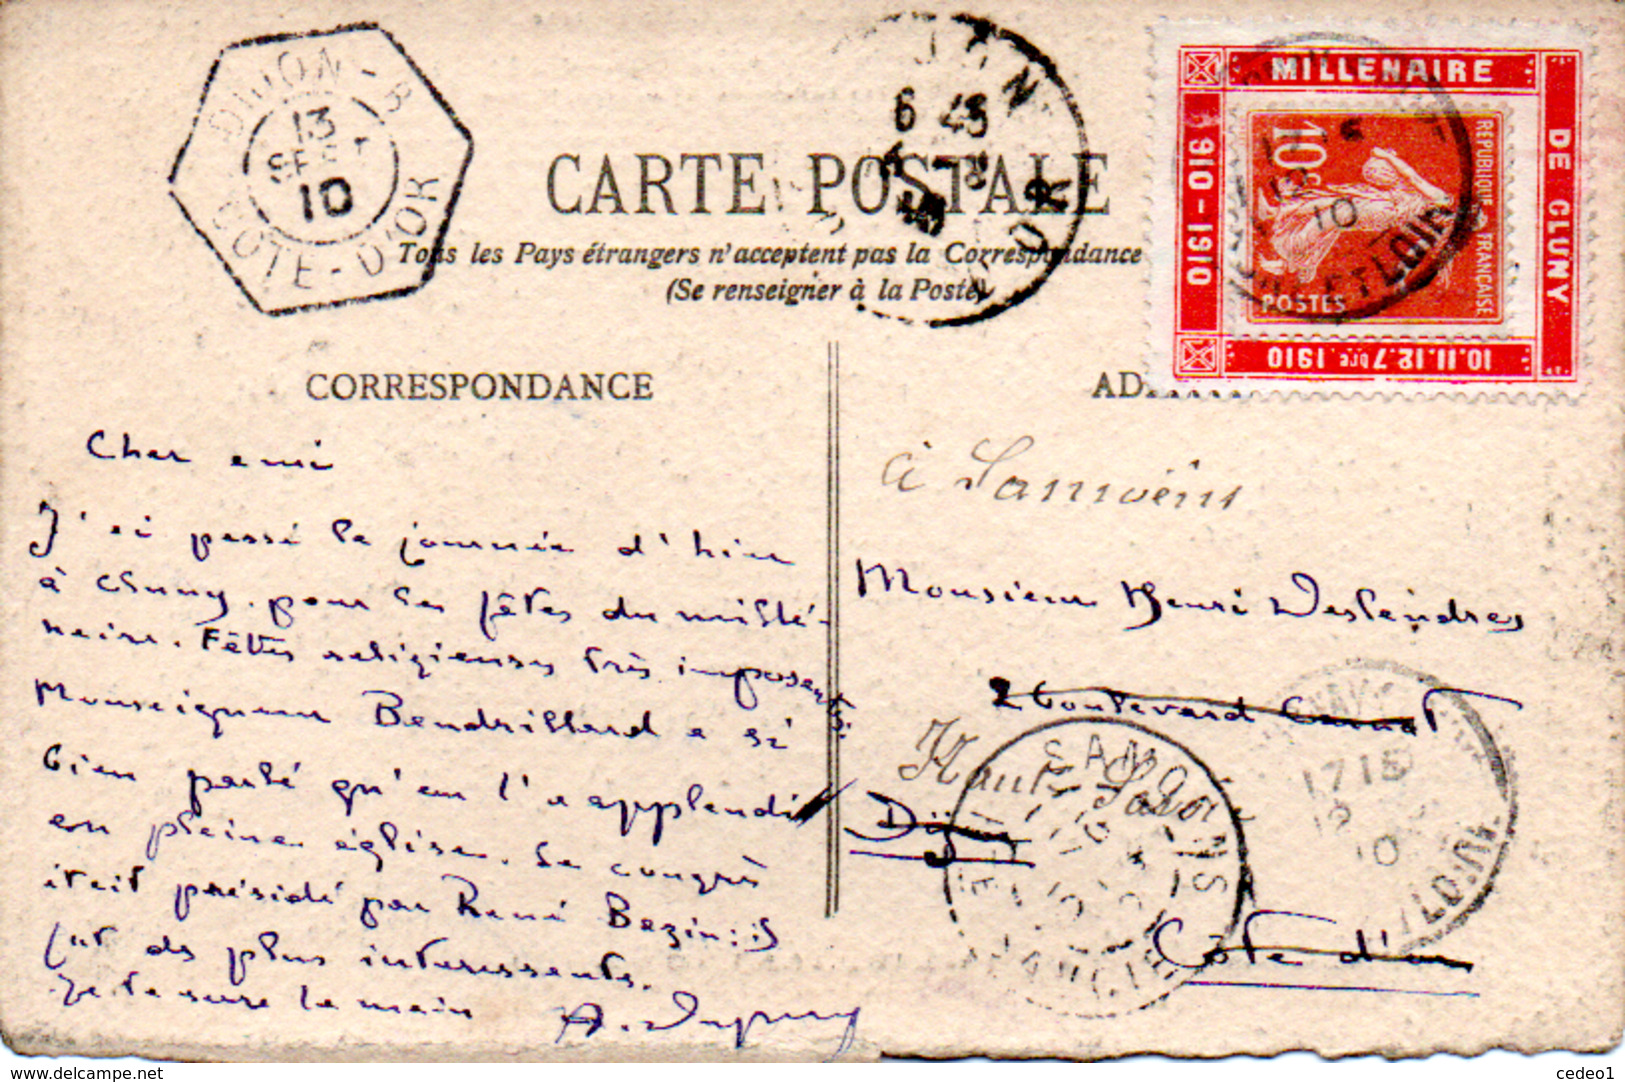 DIJON - R
13
SEPT
10
COTE-D'OR
6 45
CARTE POSTALE
Tous les Pays étrangers n'acceptent pas la Correspondance
(Se renseigner à la Poste)
MILLENAIRE
DE CLUNY
910-1910
10.11.12.7bre.1910
REPUBLIQUE FRANÇAISE
10c
POSTES
ET LOIRE
10
CORRESPONDANCE
Cher ami
J'ai passé la journée d'hier
à Cluny pour les fêtes du millé-
naire. Fêtes religieuses très imposantes.
Monseigneur Baudrillard a si
bien parlé qu'on l'a applaudi
en pleine église. Le congrès
était présidé par René Bazin: il
fut des plus intéressants.
Je te serre la main
à Samoëns
Monsieur Henri Deslandres
2 boulevard Carnot
Haute Savoie
Dijon
Côte d'or
SAMOENS
1715
10
cedeo1